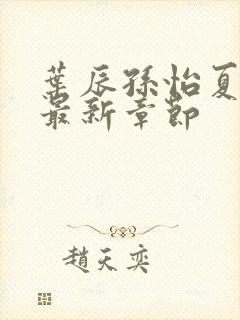 葉辰孫怡夏
最新章節
趙天奕